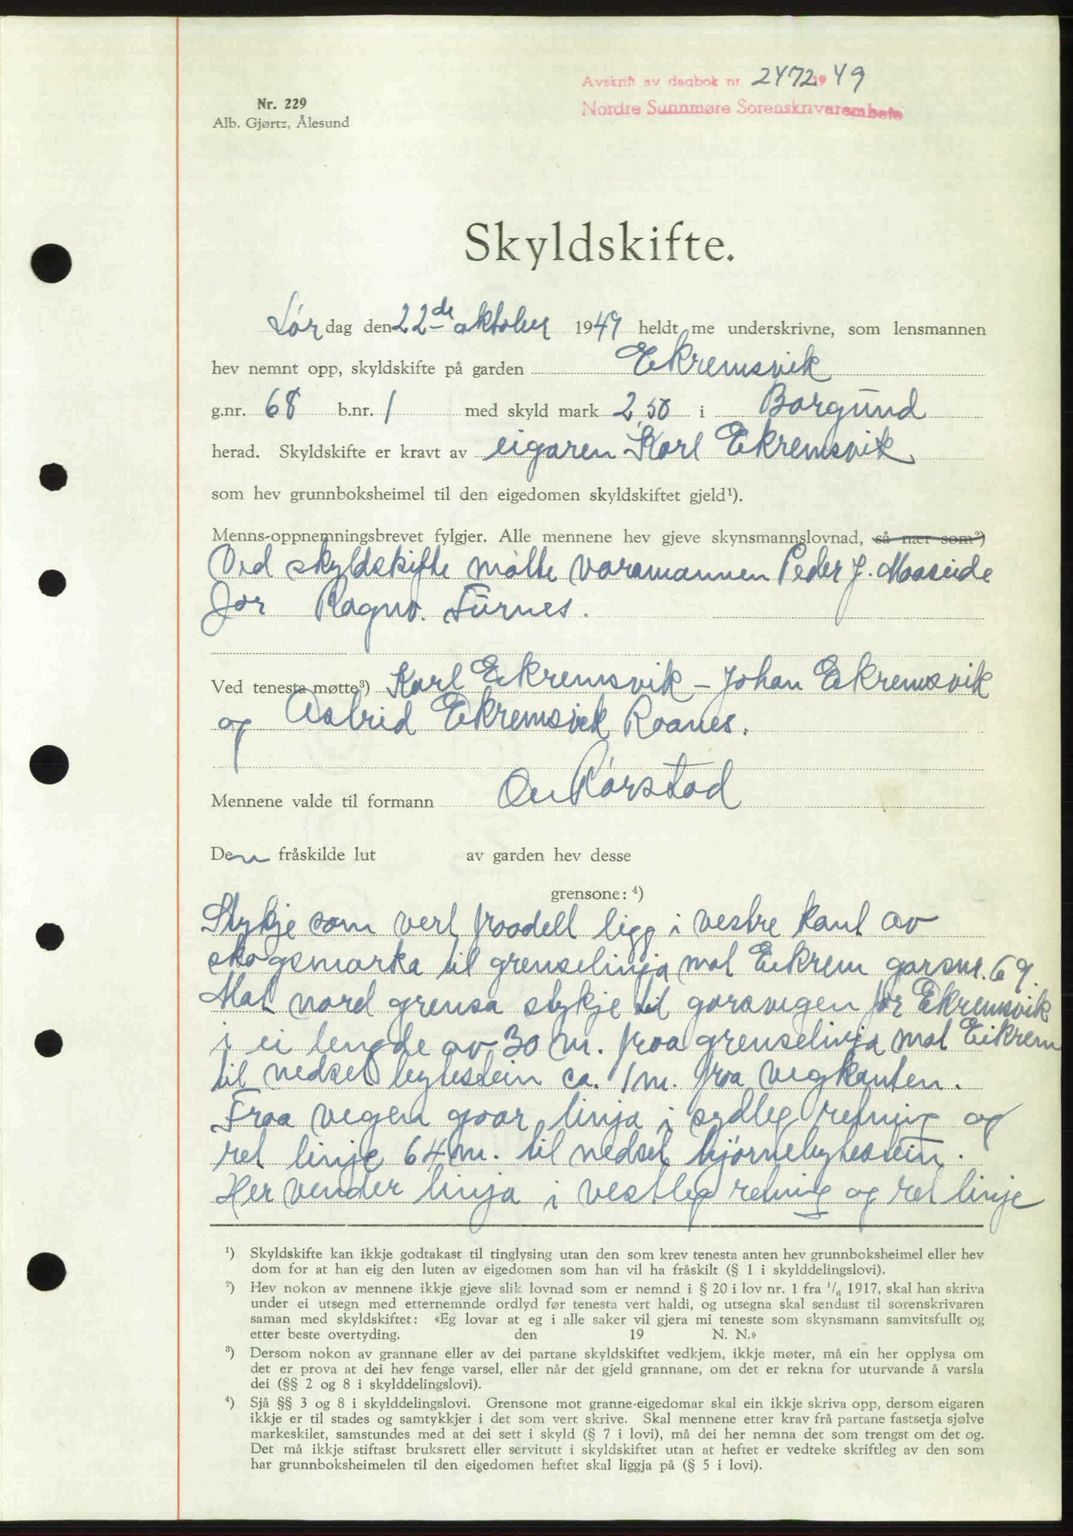 Avskrift av dagbok nr. 2472 1949
Nordre Sunnmøre Sorenskrivarembete
Nr. 229
Alb. Gjørtz, Ålesund
Skyldskifte.
Lør dag den 22de oktober 1949 heldt me underskrivne, som lensmannen
hev nemnt opp, skyldskifte på garden Ekremsvik
g.nr. 68 b.nr. 1 med skyld mark 2,50 i Borgund
herad. Skyldskifte er kravt av eigaren Karl Ekremsvik
som hev grunnboksheimel til den eigedomen skyldskiftet gjeld¹).
Menns-oppnemningsbrevet fylgjer. Alle mennene hev gjeve skynsmannslovnad, så nær som²)
Ved skyldskifte møtte varamannen Peder J. Maaseide
for Ragnv. Furnes.
Ved tenesta møtte³) Karl Ekremsvik – Johan Ekremsvik
og Astrid Ekremsvik Roanes.
Mennene valde til formann Rørstad
Den fråskilde lut av garden hev desse
grensone: ⁴)
Stykje som vert fraadelt ligg i vestre kant av
skogsmarka til grenselinja mot Eikrem garsnr. 69.
Mot nord grensa stykje til garsvegen for Ekremsvik
i ei lengde av 30 m. fraa grenselinja mot Eikrem
til nedset bytestein ca. 1 m. fraa vegkanten.
Fraa vegen gaar linja i sydleg retning og
ret linje 64 m. til nedset hjørnebytestein.
Her vender linja i vestleg retning og ret linje
¹) Skyldskifte kan ikkje godtakast til tinglysing utan den som krev tenesta anten hev grunnboksheimel eller hev
dom for at han eig den luten av eigedomen som han vil ha fråskilt (§ 1 i skylddelingslovi).
²) Hev nokon av mennene ikkje gjeve slik lovnad som er nemnd i § 20 i lov nr. 1 fra ¹/₆ 1917, skal han skriva
under ei utsegn med etternemnde ordlyd før tenesta vert haldi, og utsegna skal sendast til sorenskrivaren
saman med skyldskiftet: «Eg lovar at eg i alle saker vil gjera mi teneste som skynsmann samvitsfullt og
etter beste overtyding. den 19 N. N.»
³) Dersom nokon av grannane eller av dei partane skyldskiftet vedkjem, ikkje møter, må ein her opplysa om
det er prova at dei hev fenge varsel, eller når det gjeld grannane, om det er rekna for uturvande å varsla
dei (§§ 2 og 8 i skylddelingslovi).
⁴) Sjå §§ 3 og 8 i skylddelingslovi. Grensone mot granne-eigedomar skal ein ikkje skriva opp, dersom eigaren
ikkje er til stades og samtykkjer i det som vert skrive. Skal mennene etter krav frå partane fastsetja sjølve
markeskilet, samstundes med at dei sett i skyld (§ 7 i lovi), må dei her nemna det som trengst om det og.
Det må ikkje stiftast bruksrett eller servitutt i skyldskiftet utan at heftet er vedteke skriftleg av den som
har grunnboksheimelen til den eigedomen heftet skal liggja på (§ 5 i lovi).